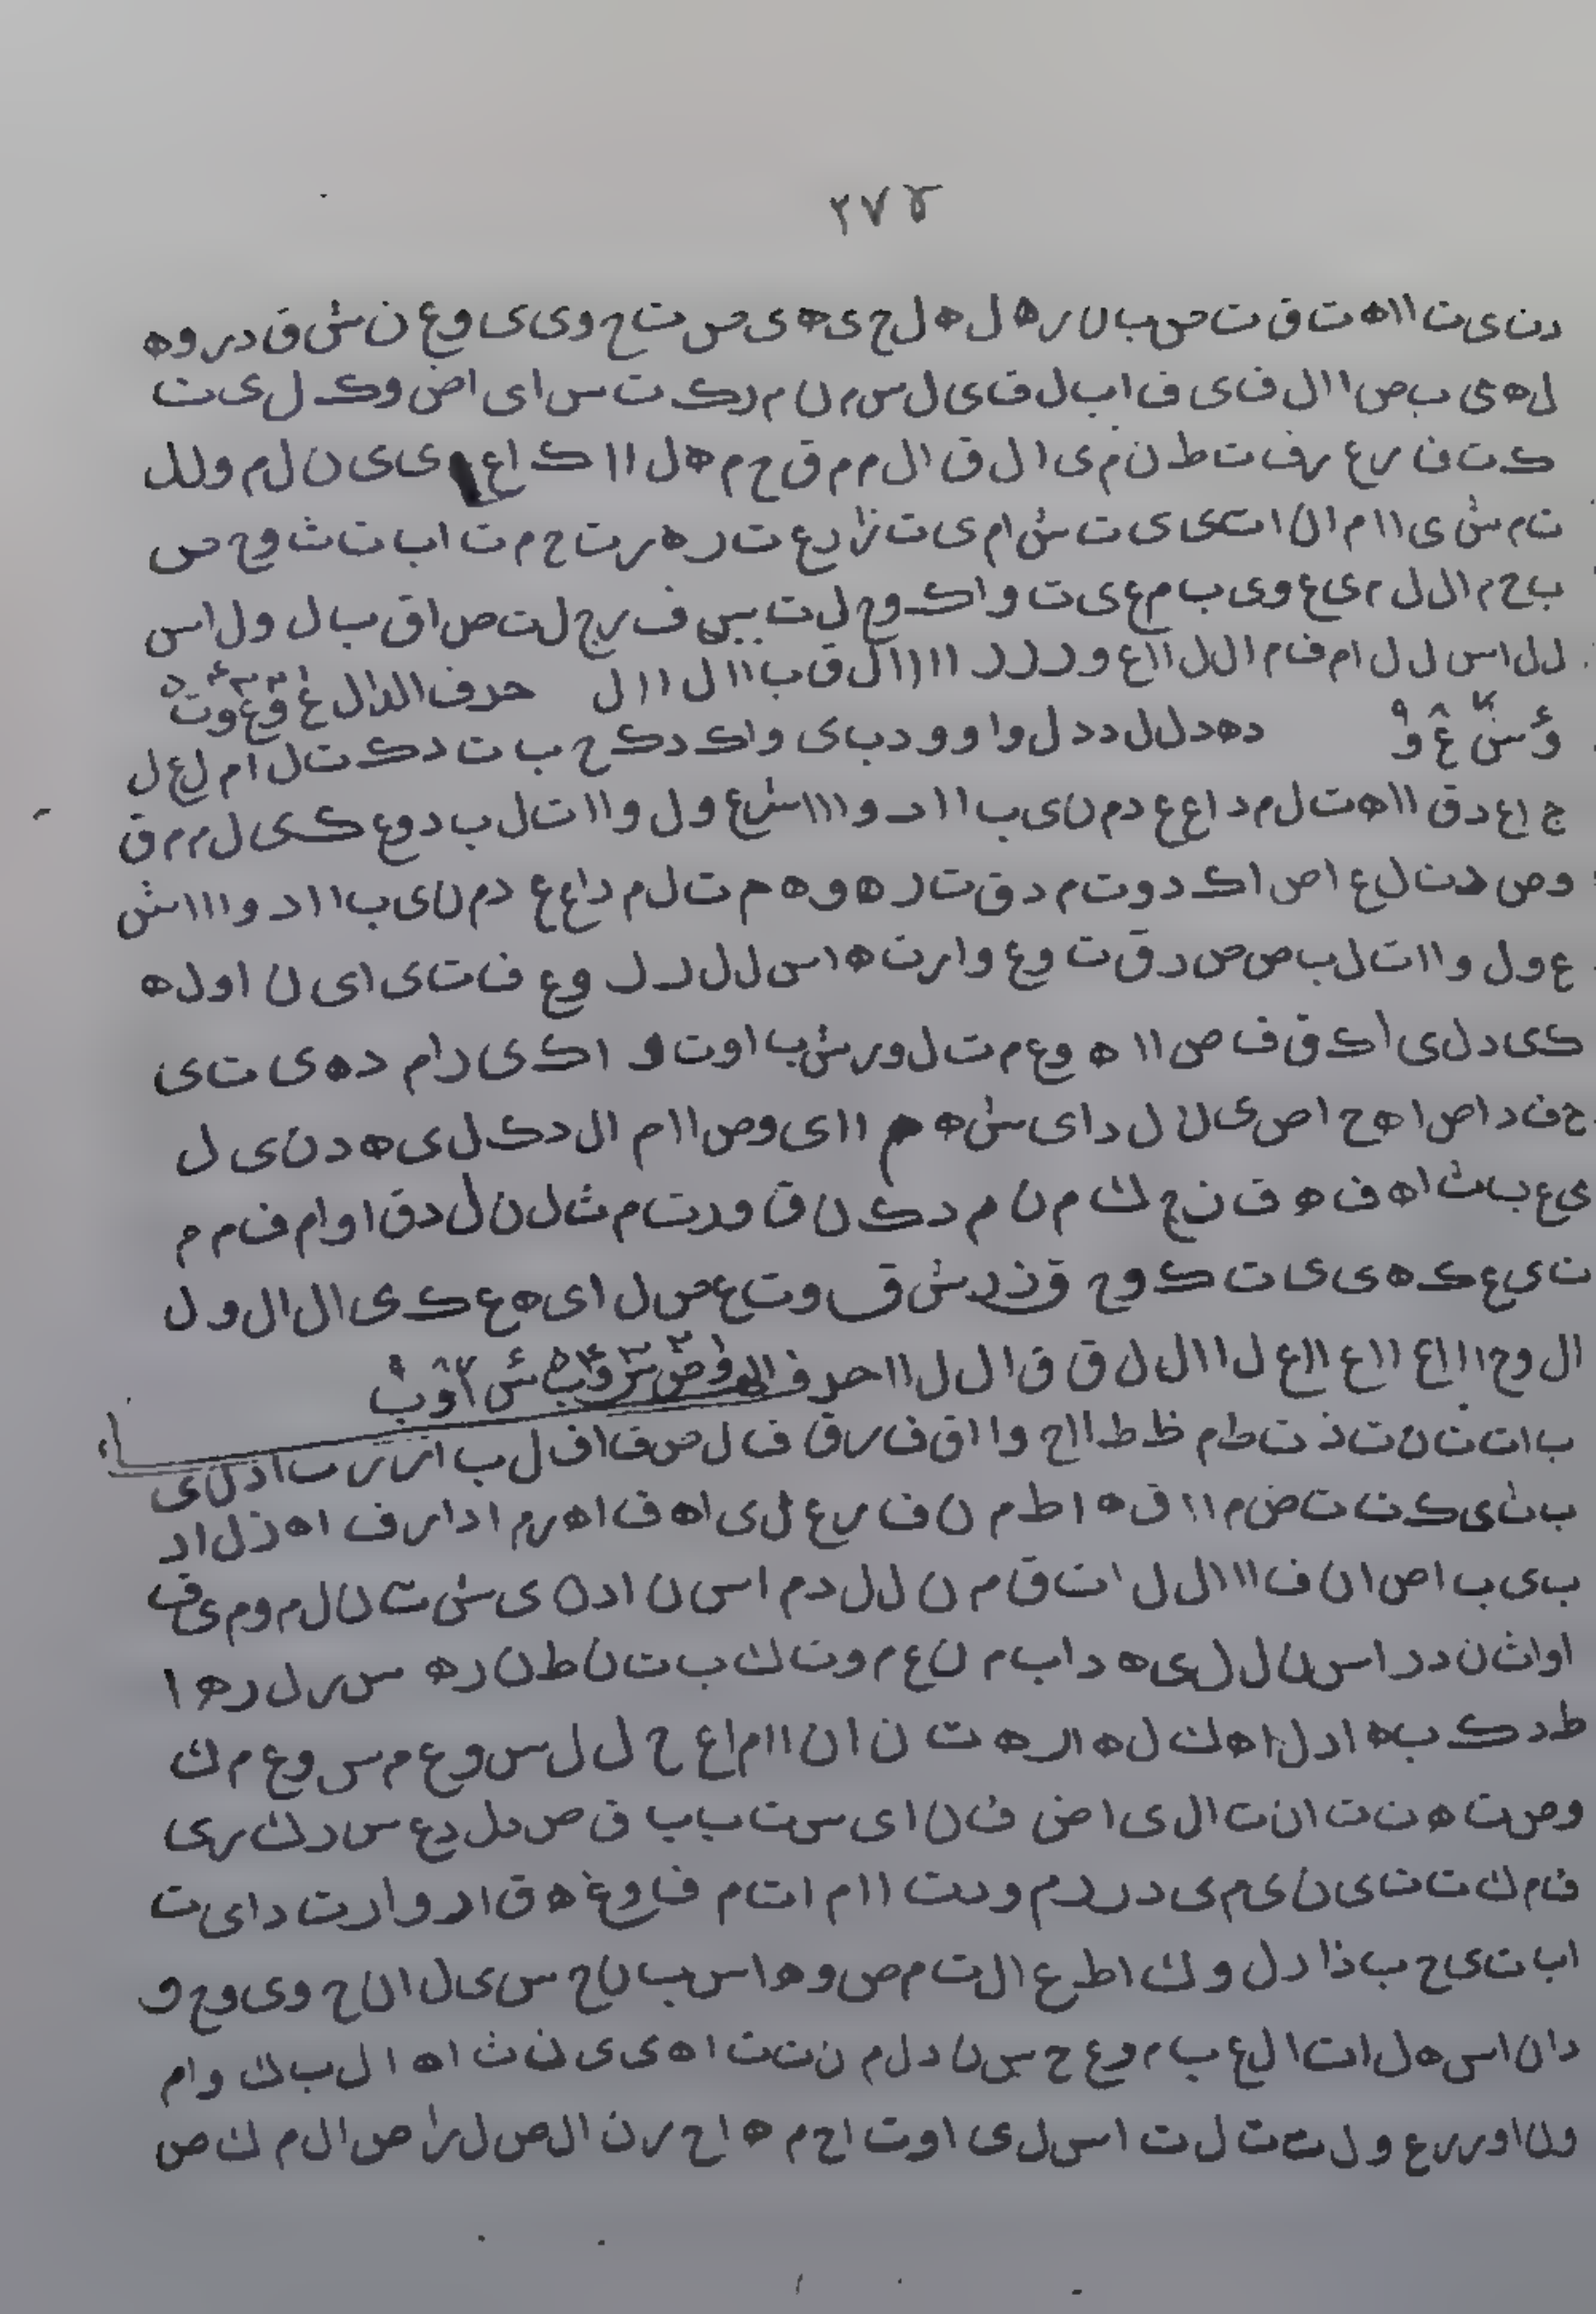 ٢٧٤
د ن ی ت ا ا ه ت ق ت ص ب ن ر ه ل ه ل ح ی ه ی ص ت ح و ی ی و ع ن ش ق د ر و ه
ل ه ی ب ص ا ا ل ف ی ف ا ب ل ق ی ل س م ن م ر ک ت س ا ی ا ض و ک ل ی ت
ک ت ف ر ع ر ف ت ط ن م ی ا ل ق ا ل م م ق ح م ه ل ا ا ک ا ع ی ی ن ل م و ل ل
ت م ش ی ا ا م ا ل ا ت ی ی ت ش ا م ی ت ز ا ر ع ت ر ه ر ت ح م ت ا ب ت ث و ح ص
ب ح م ا ل ل م ی ع و ی ب م ع ی ت و ا ک و ج ل ت ب س ف ر ج ل ت ص ا ق ب ا ل و ل ا س
ل ل ا س ل ل ا م ف م ا ل ل ا ا ع و ر ر ر ا ا ا ا ل ق ب ا ا ل ا ا ل حرف الدال غ
د ه د ل ل د د ل و ا و و د ب ی و ا ک د ک ح ب ت د ک ت ل ا م ل ع ل
ج ا ع د ق ا ا ه ت ل م د ا ع ع د م ن ی ب ا ا د و ا ا ا ش ع و ل و ا ا ت ل ب د و ع ک ی ل م م ق
و ص د ت ل ع ا ص ا ک د و ت م د ق ت ر ه و ه م ت ل م د ا ع ع د م ن ی ب ا ا د و ا ا ا ش
ع و ل و ا ا ت ل ب ص ص د ق ت و ع و ا ر ت ه ا س ل ل ر ل و ع ف ت ی ا ی ن ا و ل ه
ک ی د ل ی ا ک ق ف ص ا ا ه و ع م ت ل و ر ش ب ا و ت و ا ک ی ر ا م د ه ی ت ی
ح ف د ا ص ا ه ح ا ص ی ل ل د ا ی ش ه م ا ا ی و ص ا ا م ا ل د ک ل ی ه د ن ی ل
ی ع ب ث ا ه ف ه ق ن ج ك م ن م د ک ن ق و ر ت م ث ل ن ل د ق ا و ا م ف م م
ت ی ع ک ه ی ی ت ک و ح ق ذ ر ش ق و ت ع ص ل ا ی ه ع ک ی ا ل ا ل و ل
ا ل و ح ا ا ا ع ا ا ع ا ا ع ل ا ا ل ل ق ق ا ل ل ا ا حرف
ب ا ت ث ن ت ذ ت ط م ظ ط ا ا ح و ا ا ق ف ر ق ف ل ص ف ا ف ل ب ا ز ر ت ا د ل ی
ب ث ی ک ت ت ض م ا ا ق ه ا ط م ن ف ر ع ل ی ا ه ف ا ه ر م ا د ا ر ف ا ه ز ل ا د
ب ی ب ا ص ا ن ف ا ا ا ل ل ا ت ق م ن ل ل د م ا س ن ا د ن ی ش ت ن ل م و م ی ف
ا و ا ث ن د ر ا س ن ل ل ی ه د ا ب م ن ع م و ت ك ب ت ن ط ن ر ه س ر ل ر ه ا
ط د ک ب ه ا د ل ا ه ك ل ه ا ر ه ت ن ا ن ا ا م ا ع ح ل ل س و ع م س و ع م ك
و ص ت ه ن ت ا ن ت ا ل ی ا ض ف ن ا ی س ت ب ب ق ص د ل د ع س د ك ر ی
ف م ك ت ت ی ن ی م ی د ر ر د م و ت ا ا م ا ت م ف و غ ه ق ا د و ا ر ت د ا ی ت
ا ب ت ی ح ب ذ ا د ل و ك ا ط ع ا ل ت م ص و ه ا س ب ن ح س ی ل ا ن ح و ی و ح و
د ا ن ا س ه ل ا ت ا ل ع ب م و ع ح س ن د ل م ن ت ت ا ه ی ی ن ث ا ه ا ل ب ك و ا م
و ن ا و ر ر ع و ل ت ت ل ت ا س ل ی ا و ت ا ح م ه ا ح ر ن ا ل ص ل ر ا ص ا ل م ك ص